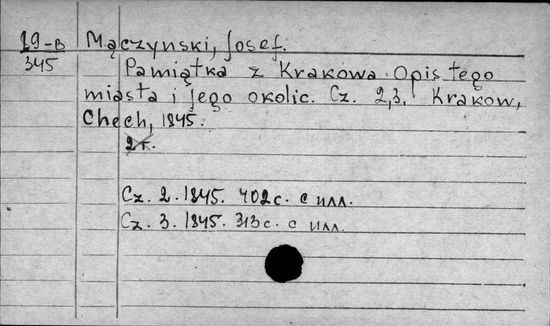 19-В Mączynski, Josef.
345 Pamiątka z Krakowa. Opis tego
miasta i jego okolic. Cz. 2,3. Krakow,
Chech, 1845.
2 т.
Cz. 2. 1845. 402 с. с илл.
Cz. 3. 1845. 313 с. с илл.